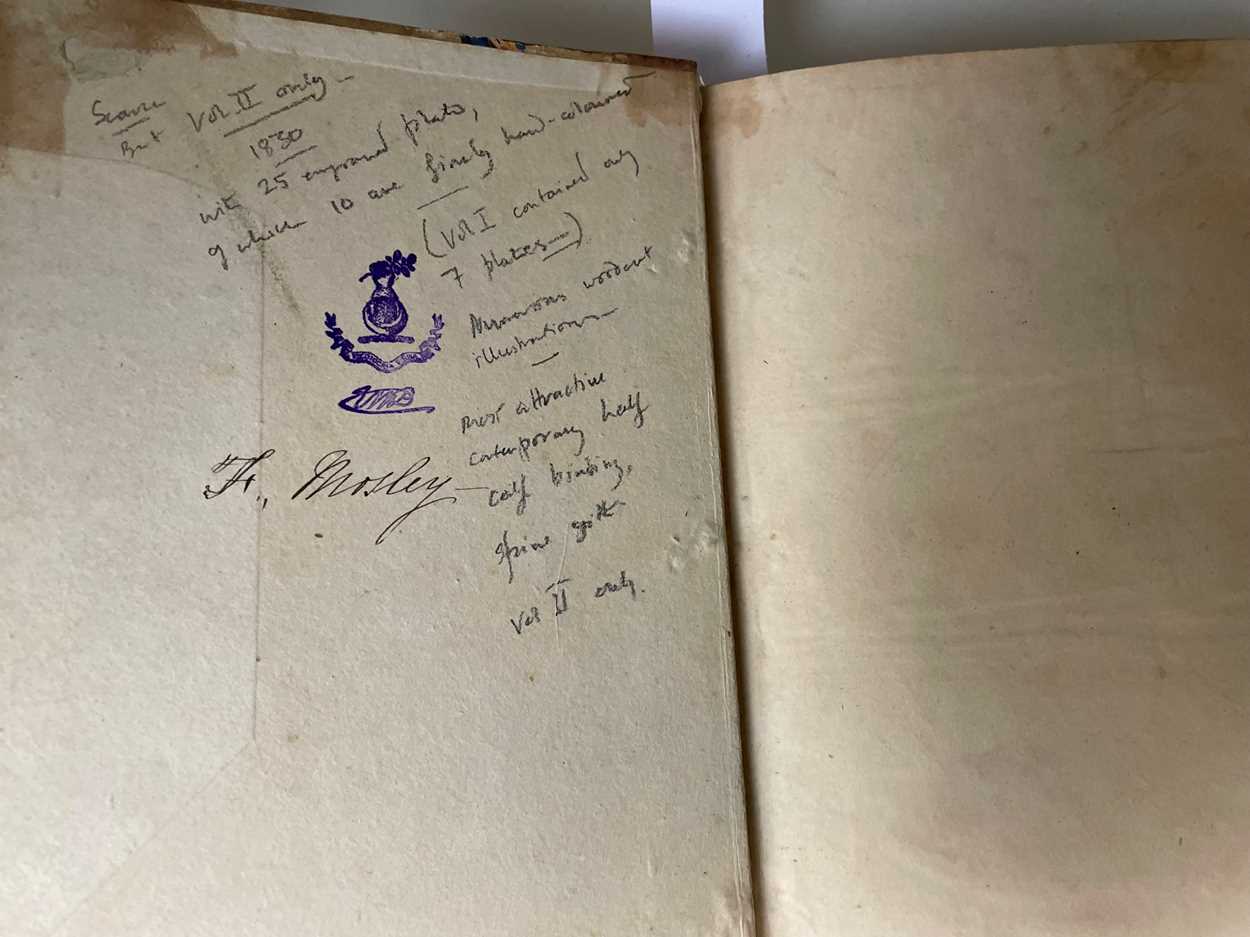 Scarce
But Vol II only –
1830
with 25 engraved plates,
of which 10 are finely hand-coloured
(Vol I contained only
7 plates –)
Numerous woodcut
illustrations –
Most attractive
contemporary half
calf binding,
spine gilt
Vol II only.
F., Mosley